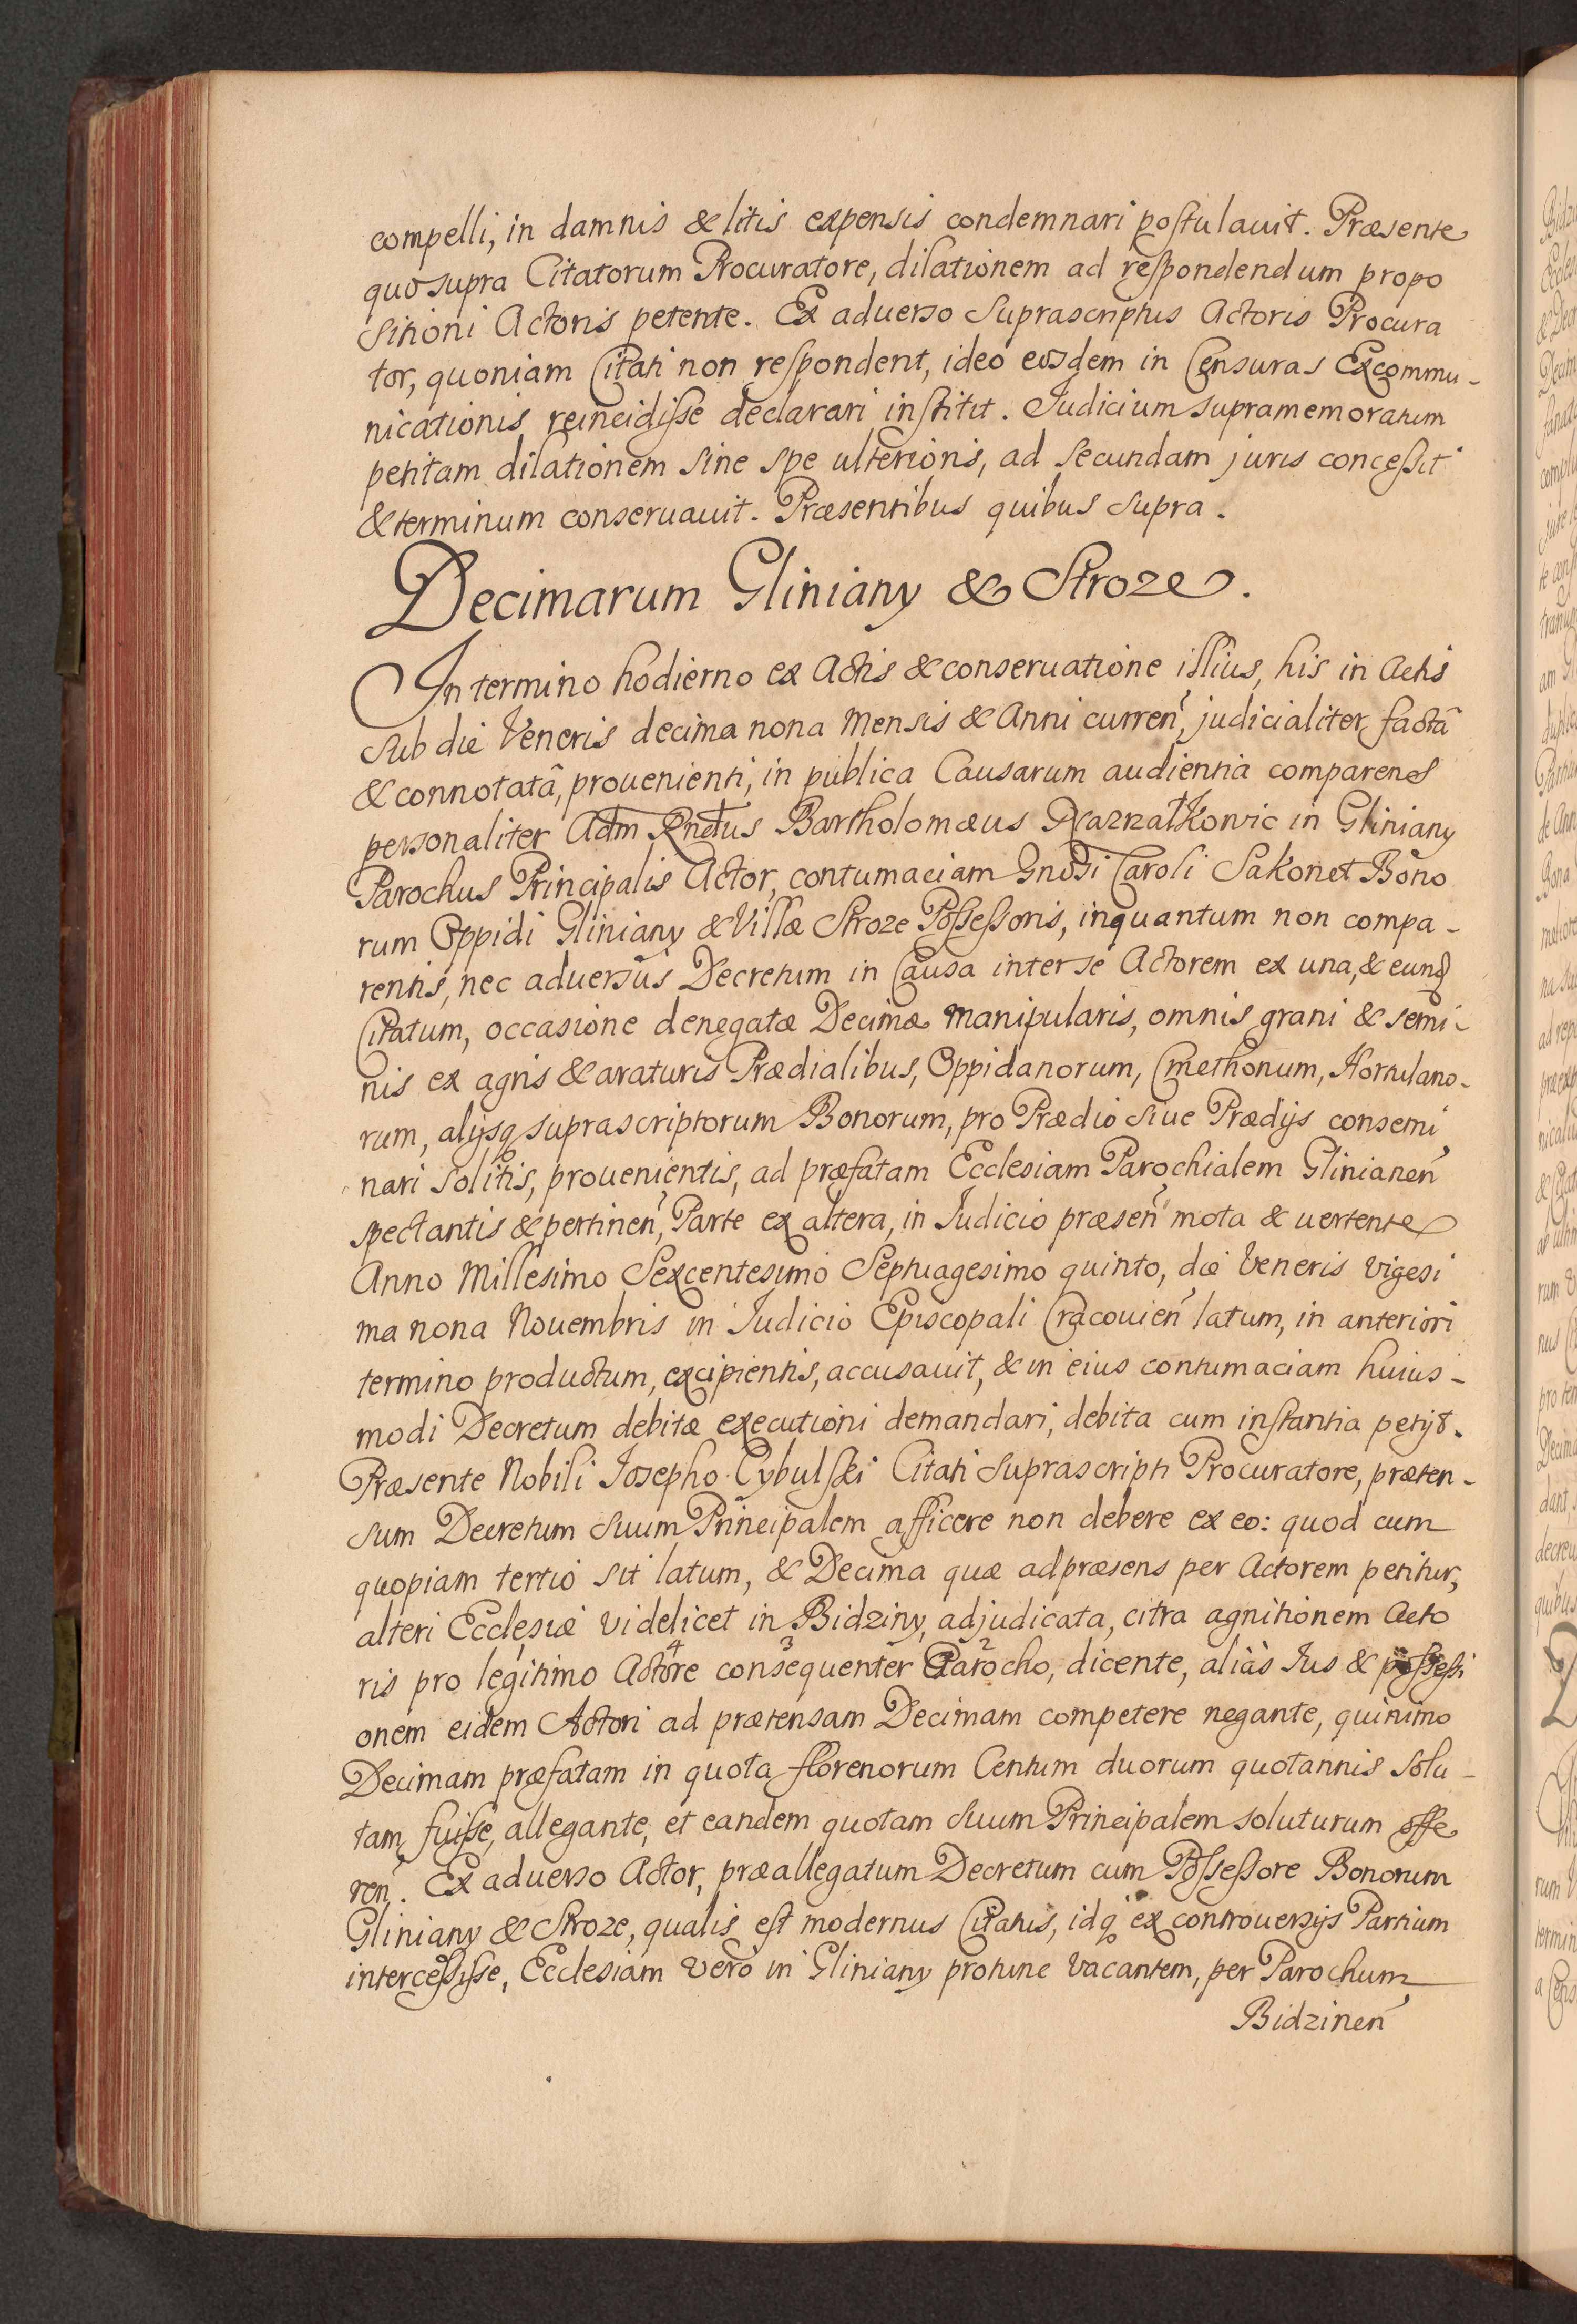 compelli, in damnis & litis expensis condemnari postulauit. Præsente
quo supra Citatorum Procuratore, dilationem ad respondendum propo
sitioni Actoris petente. Ex aduerso suprascriptus Actoris Procura
tor, quoniam Citati non respondent, ideo eosdem in Censuras Excommu-
nicationis reincidisse declarari institit. Iudicium supramemoratum
petitam dilationem sine spe ulterioris, ad secundam juris concessit
& terminum conseruauit. Præsentibus quibus supra.
Decimarum Gliniany & Stroze.
In termino hodierno ex Actis & conseruatione illius, his in Actis
sub die Veneris decima nona Mensis & Anni curren, judicialiter factâ
& connotatâ, prouenienti, in publica Causarum audientia comparens
personaliter Adm Rndus Bartholomæus in Gliniany
Parochus Principalis Actor, contumaciam Gnosi Caroli Sakonet Bono
rum Oppidi Gliniany & Villæ Stroze Possessoris, inquantum non compa-
rentis, nec aduersus Decretum in Causa inter se Actorem ex una, & eund
Citatum, occasione denegatæ Decimæ manipularis, omnis grani & semi-
nis ex agris & araturis Prædialibus, Oppidanorum, Cmethonum, Hortulano-
rum, alijsq suprascriptorum Bonorum, pro Prædio siue Prædijs consemi
nari solitis, prouenientis, ad præfatam Ecclesiam Parochialem Glinianen
spectantis & pertinen, Parte ex altera, in Iudicio præsen mota & uertente
Anno Millesimo Sexcentesimo Septuagesimo quinto, die Veneris vigesi
ma nona Nouembris in Iudicio Episcopali Cracouien latum, in anteriori
termino productum, excipientis, accusauit, & in eius contumaciam huius-
modi Decretum debitæ executioni demandari, debita cum instantia petijt.
Præsente Nobili Iosepho Cybulski Citati suprascripti Procuratore, præten-
sum Decretum suum Principalem afficere non debere ex eo: quod cum
quopiam tertio sit latum, & Decima quæ ad præsens per Actorem petitur,
alteri Ecclesiæ videlicet in Bidziny, adjudicata, citra agnitionem Acto
ris pro legitimo Actore consequenter Parocho, dicente, aliàs Ius & possessi
onem eidem Actori ad prætensam Decimam competere negante, quinimo
Decimam præfatam in quota florenorum Centum duorum quotannis solu-
tam fuisse, allegante, et eandem quotam suum Principalem soluturum offe
ren. Ex aduerso Actor, præallegatum Decretum cum Possessore Bonorum
Gliniany & Stroze, qualis est modernus Citatus, idq ex controuersijs Partium
intercessisse, Ecclesiam verò in Gliniany protunc vacantem, per Parochum
Bidzinen